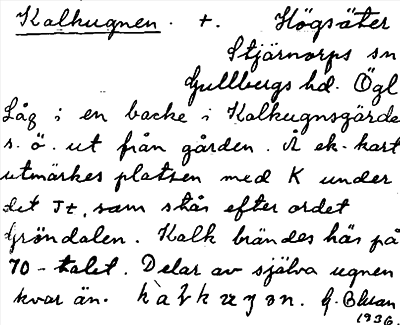 Kalkugnen. +. Högsäter
Stjärnorps sn
Gullbergs hd. Ögl
Låg i en backe i Kalkugnsgärde
s. ö. ut från gården. Å ek. kart
utmärkes platsen med K under
det Jt, som står efter ordet
Gröndalen. Kalk brändes här på
70-talet. Delar av själva ugnen
kvar än.
1936.